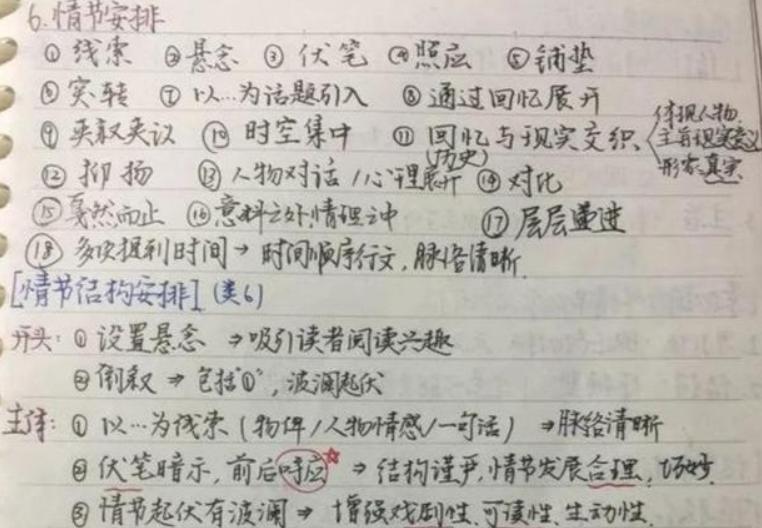 6.情节安排
① 线索 ② 悬念 ③ 伏笔 ④照应 ⑤ 铺垫
⑥ 突转 ⑦ 以…为话题引入 ⑧ 通过回忆展开
⑨ 夹叙夹议 ⑩ 时空集中 ⑪ 回忆与现实交织
(历史)
体现人物
主旨现实意义
形象真实
⑫ 抑扬 ⑬ 人物对话/心理展开 ⑭ 对比
⑮ 戛然而止 ⑯ 意料之外,情理之中 ⑰ 层层递进
⑱ 多次提到时间→时间顺序行文,脉络清晰.
[情节结构安排] (类6)
开头: ① 设置悬念 ⇒吸引读者阅读兴趣
② 倒叙 ⇒ 包括"①",波澜起伏
主体: ① 以…为线索(物件/人物情感/一句话) ⇒脉络清晰
② 伏笔暗示,前后呼应 ⇒ 结构谨严,情节发展合理,巧妙.
③ 情节起伏有波澜⇒ 增强戏剧性、可读性、生动性